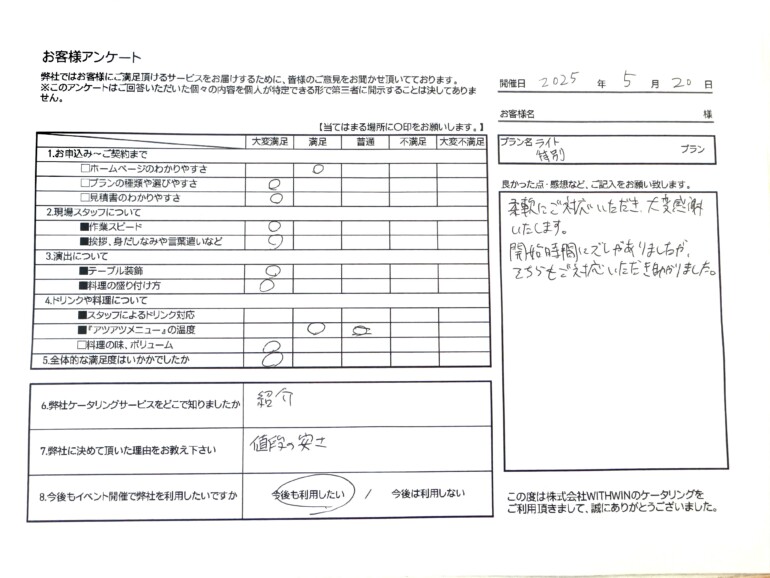 お客様アンケート
弊社ではお客様にご満足頂けるサービスをお届けするために、皆様のご意見をお聞かせ頂いております。
※このアンケートはご回答いただいた個々の内容を個人が特定できる形で第三者に開示することは決してありま
せん。
【当てはまる場所に〇印をお願いします。】
大変満足 満足 普通 不満足 大変不満足
1.お申込み～ご契約まで
□ホームページのわかりやすさ 〇
□プランの種類や選びやすさ 〇
□見積書のわかりやすさ 〇
2.現場スタッフについて
■作業スピード 〇
■挨拶、身だしなみや言葉遣いなど 〇
3.演出について
■テーブル装飾 〇
■料理の盛り付け方 〇
4.ドリンクや料理について
■スタッフによるドリンク対応
■『アツアツメニュー』の温度 〇
□料理の味、ボリューム 〇
5.全体的な満足度はいかがでしたか 〇
6.弊社ケータリングサービスをどこで知りましたか 紹介
7.弊社に決めて頂いた理由をお教え下さい 値段の安さ
8.今後もイベント開催で弊社を利用したいですか 今後も利用したい / 今後は利用しない
開催日 2025 年 5 月 20 日
お客様名 様
プラン名 ライト
特別 プラン
良かった点・感想など、ご記入をお願い致します。
柔軟にご対応いただき、大変感謝
いたします。
開始時間にズレがありましたが、
そちらもご対応いただき助かりました。
この度は株式会社WITHWINのケータリングを
ご利用頂きまして、誠にありがとうございました。